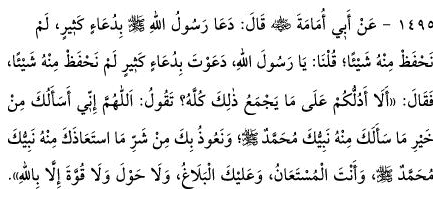 ١٤٩٥ - عَنْ أَبِي أُمَامَةَ ﷺ قَالَ: دَعَا رَسُولُ اللهِ ﷺ بِدُعَاءٍ كَثِيرٍ، لَمْ
نَحْفَظْ مِنْهُ شَيْئًا؛ قُلْنَا: يَا رَسُولَ اللهِ، دَعَوْتَ بِدُعَاءٍ كَثِيرٍ لَمْ نَحْفَظْ مِنْهُ شَيْئًا،
فَقَالَ: «أَلَا أَدُلُّكُمْ عَلَى مَا يَجْمَعُ ذَلِكَ كُلَّهُ؟ تَقُولُ: اَللَّهُمَّ إِنِّي أَسَأَلُكَ مِنْ
خَيْرِ مَا سَأَلَكَ مِنْهُ نَبِيُّكَ مُحَمَّدٌ ﷺ؛ وَنَعُوذُ بِكَ مِنْ شَرِّ مَا اسْتَعَاذَكَ مِنْهُ نَبِيُّكَ
مُحَمَّدٌ ﷺ، وَأَنْتَ الْمُسْتَعَانُ، وَعَلَيْكَ الْبَلَاغُ، وَلَا حَوْلَ وَلَا قُوَّةَ إِلَّا بِاللهِ».